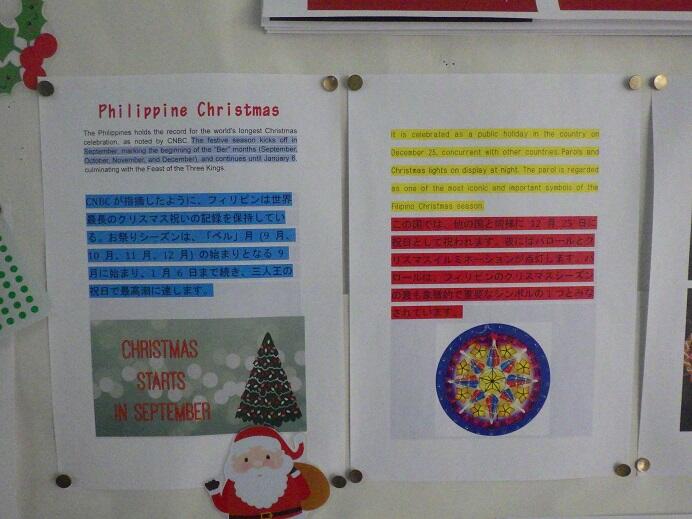 Philippine Christmas
The Philippines holds the record for the world's longest Christmas
celebration, as noted by CNBC. The festive season kicks off in
September, marking the beginning of the "Ber" months (September,
October, November, and December), and continues until January 6,
culminating with the Feast of the Three Kings.
CNBC が指摘したように、フィリピンは世界
最長のクリスマス祝いの記録を保持してい
る。お祭りシーズンは、「ベル」月 (9 月、
10 月、11 月、12 月) の始まりとなる 9
月に始まり、1 月 6 日まで続き、三人王の
祝日で最高潮に達します。
CHRISTMAS
STARTS
IN SEPTEMBER
It is celebrated as a public holiday in the country on
December 25, concurrent with other countries. Parols and
Christmas lights on display at night. The parol is regarded
as one of the most iconic and important symbols of the
Filipino Christmas season.
この国では、他の国と同様に 12 月 25 日に
祝日として祝われます。夜にはパロールとク
リスマスイルミネーションが点灯します。パ
ロールは、フィリピンのクリスマスシーズン
の最も象徴的で重要なシンボルの 1 つとみな
されています。